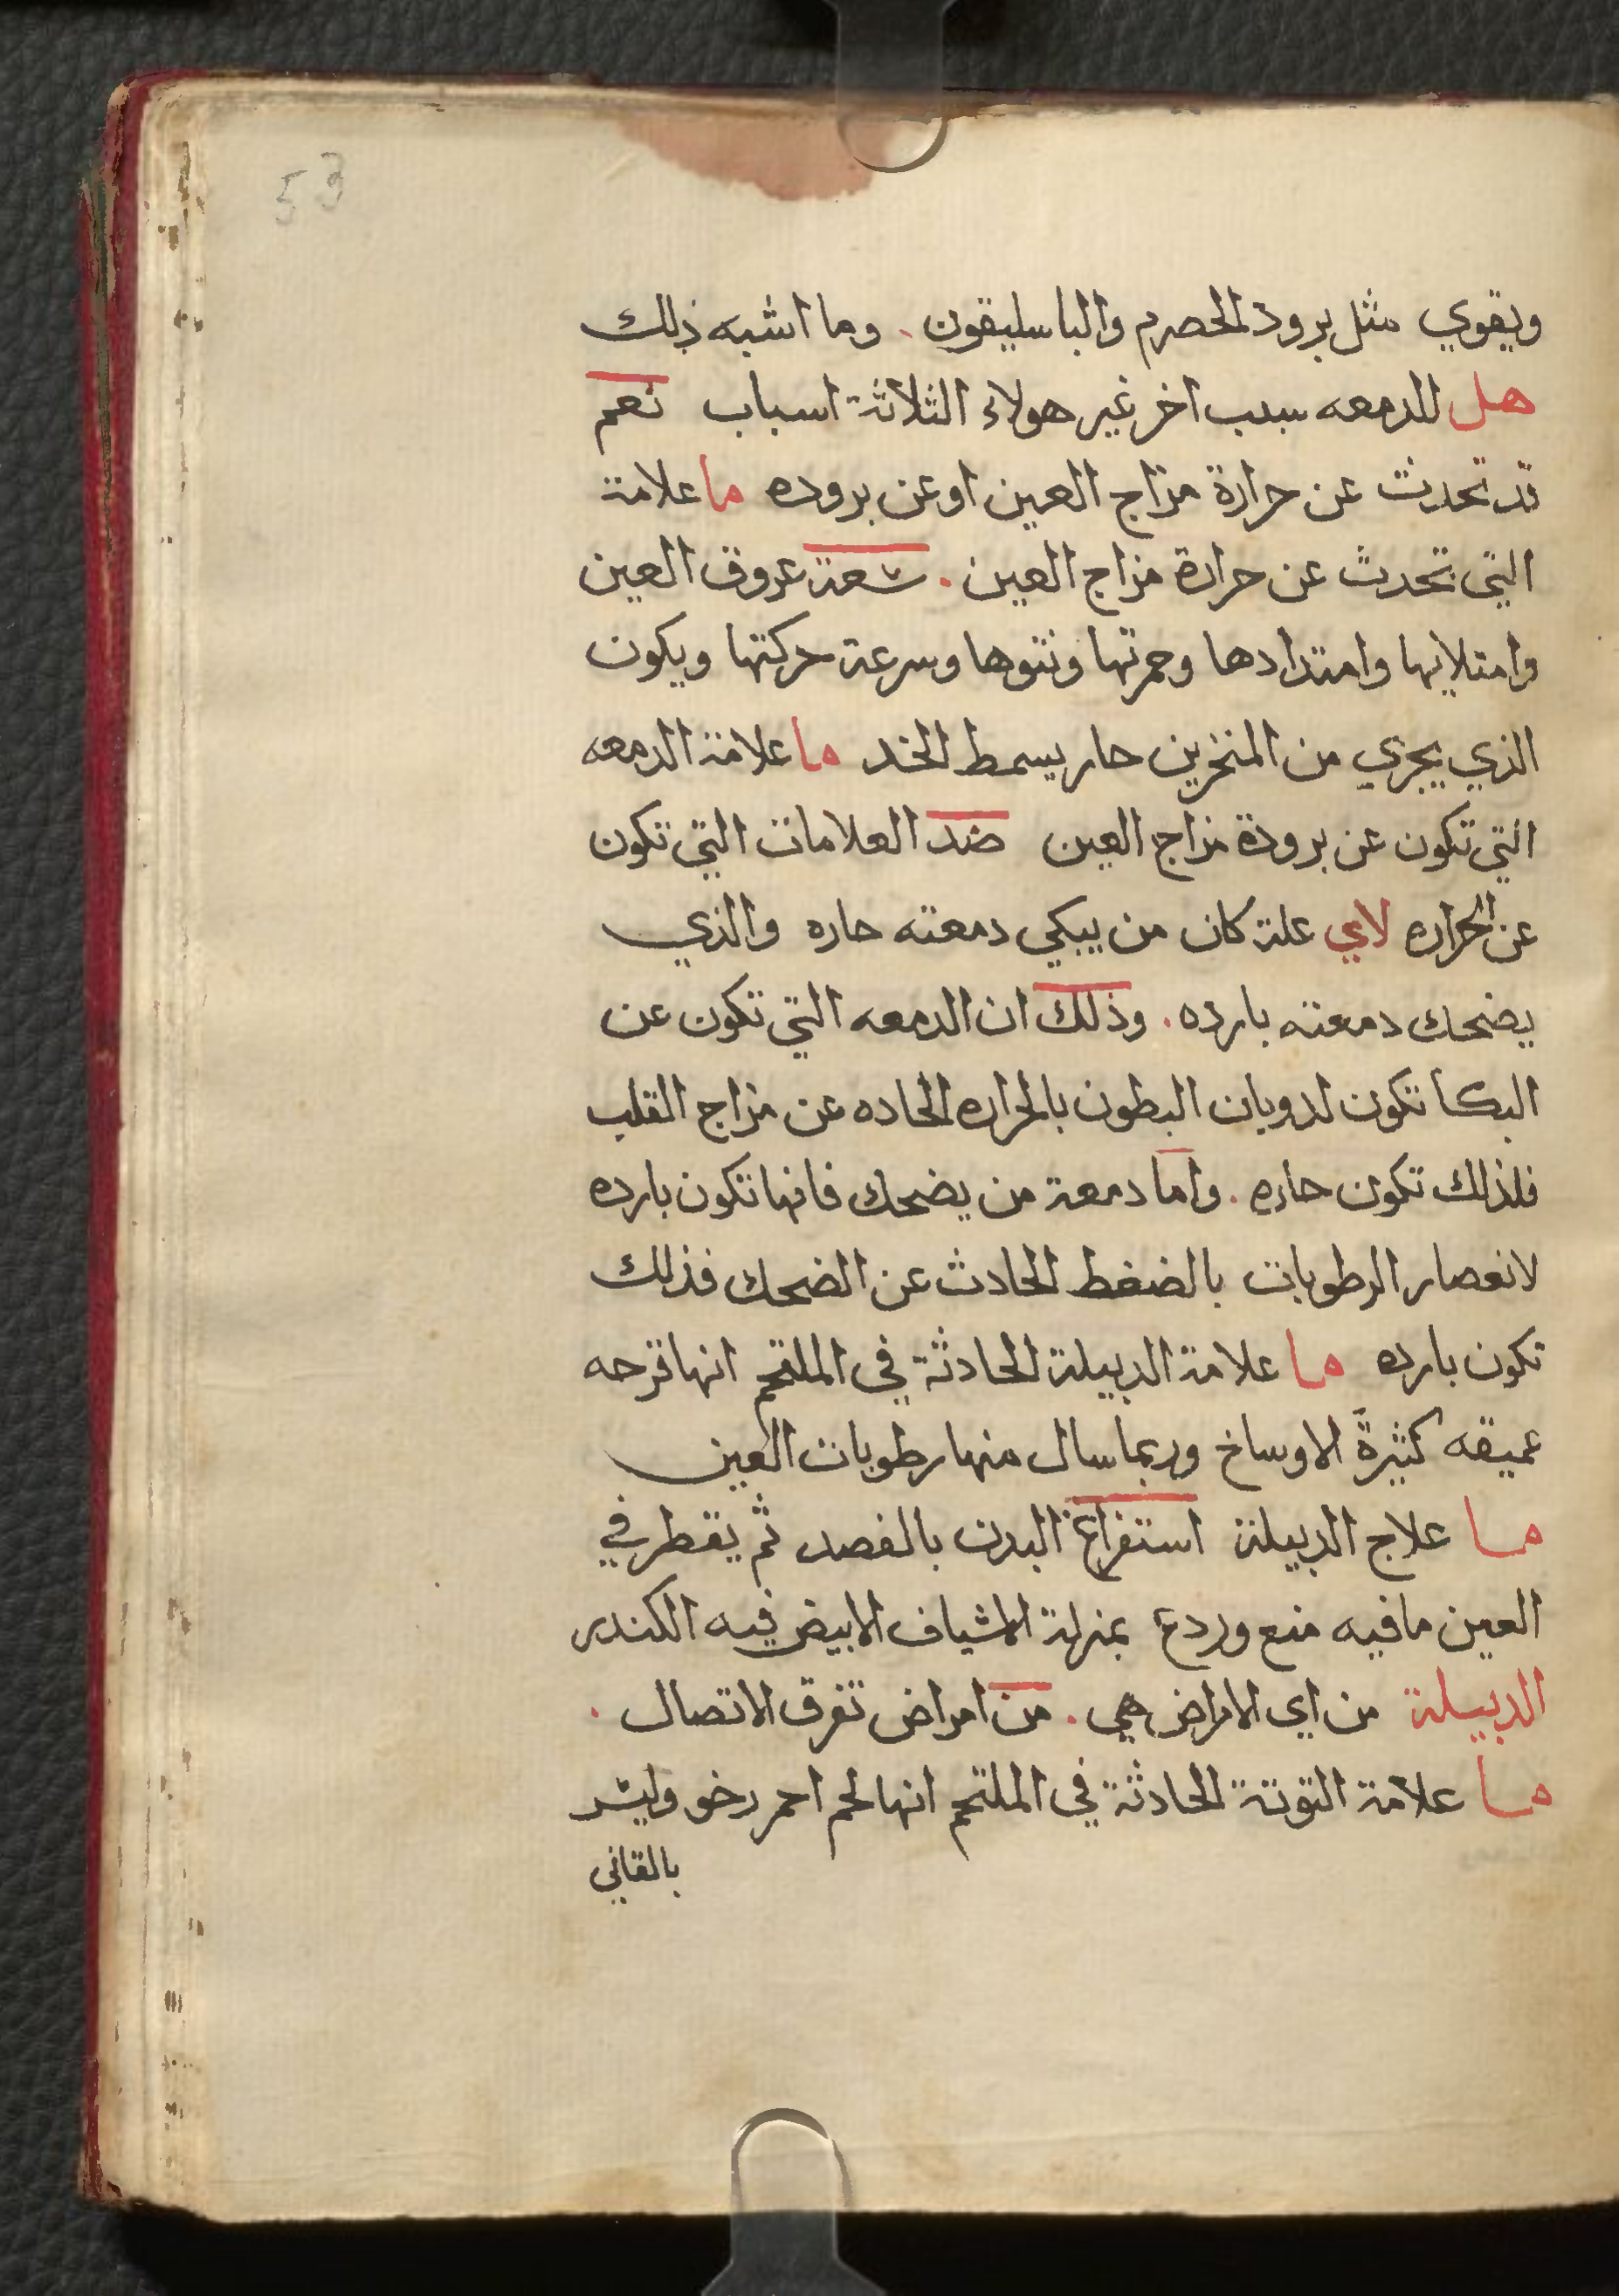 53
ويقوي مثل برود الحصرم والباسليقون . وما اشبه ذلك
هل للدمعه سبب اخر غير هولاء الثلاثة اسباب نعم
قد تحدث عن حرارة مزاج العين او عن بروده ما علامة
التي تحدث عن حرارة مزاج العين . سعة عروق العين
وامتلايها وامتدادها وحمرتها ونتوها وسرعة حركتها ويكون
الذي يجري من المنخرين حار يسمط الخد ما علامة الدمعه
التي تكون عن برودة مزاج العين ضد العلامات التي تكون
عن الحراره لاي علة كان من يبكي دمعته حاره والذي
يضحك دمعته بارده . وذلك ان الدمعه التي تكون عن
البكا تكون لدوبان البطون بالحراره الحاده عن مزاج القلب
فلذلك تكون حاره . واما دمعة من يضحك فانها تكون بارده
لانعصار الرطوبات بالضغط الحادث عن الضحك فذلك
تكون بارده ما علامة الدبيلة الحادثة في الملتحم انها قرحه
عميقه كثيرة الاوساخ وربما سال منها رطوبات العين
ما علاج الدبيلة استفراغ البدن بالفصد ثم يقطر في
العين ما فيه منع وردع بمنزلة الاشياف الابيض فيه الكندر
الدبيلة من اي الامراض هي . من امراض تفرق الاتصال .
ما علامة التوتة الحادثة في الملتحم انها لحم احمر رخو وليس
بالقاني